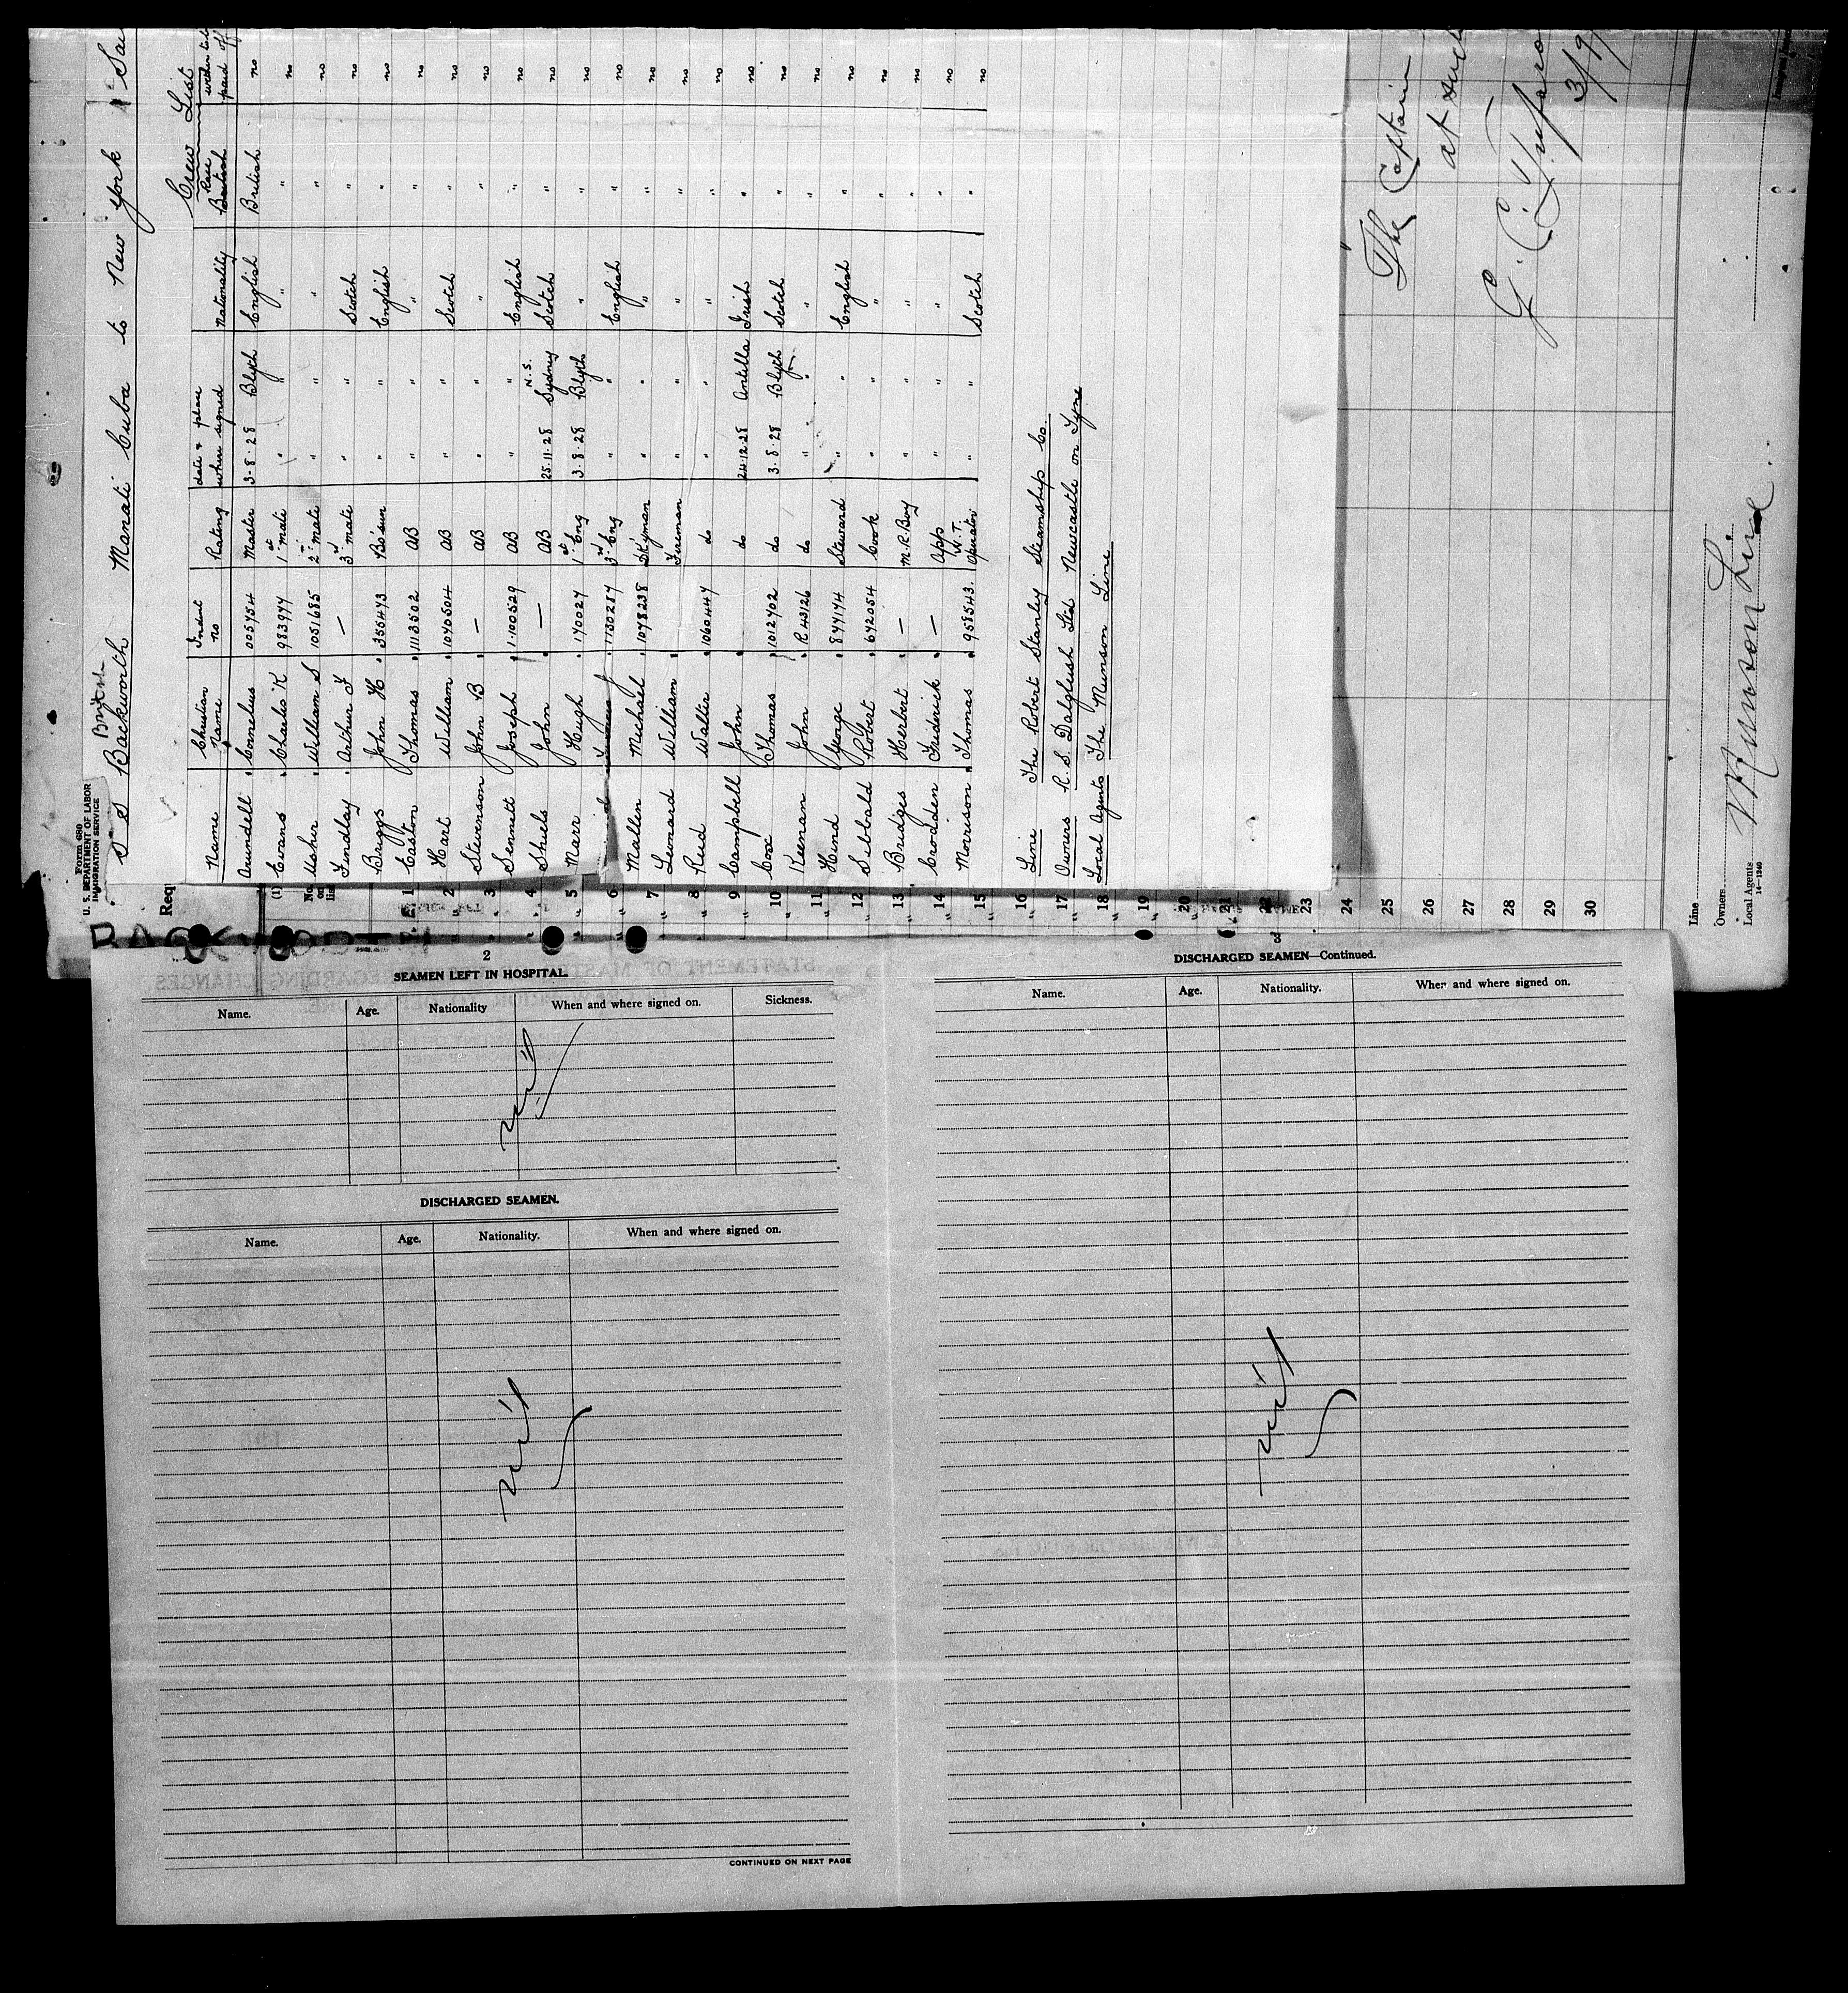 Form 680
U. S. DEPARTMENT OF LABOR
IMMIGRATION SERVICE
British
S S Backworth Manati Cuba to New York
Crew List
Name Christian Name Ident no Rating date & place where signed Nationality Race British whether to be paid off
Arundell Cornelius 1005754 Master 3-8-28 Blyth English British no
Evans Charlie K 983977 1st mate " " " " no
Usher William S 1051685 2nd mate " " " " no
Findlay Arthur F — 3rd mate " " Scotch " no
Briggs John H 355473 Bo'sun " " English " no
Easton Thomas 1113502 AB " " " " no
Hart William 1070504 AB " " Scotch " no
Stevenson John B — AB " " " " no
Sennett Joseph 1100529 AB " " English " no
Shiels John — AB 25.11.28 Sydney N.S. Scotch " no
Marr Hugh 170027 1st Eng 3.8.28 Blyth " " no
1130287 3rd Eng " " English " no
Mallen Michael 1078238 Dkyman " " " " no
Leonard William Fireman " " " " no
Reid Walter 1060447 do " " " " no
Campbell John do 24.12.28 Antilla Irish " no
Cox Thomas 1012702 do 3.8.28 Blyth Scotch " no
Keenan John R 43126 do " " " " no
Hind George 877174 Steward " " English " no
Sibbald Robert 672054 Cook " " " " no
Bridges Herbert — M.R.Boy " " " " no
Crodden Frederick — App " " " " no
Morrison Thomas 958543 W.T. Operator " " Scotch " no
Line The Robert Stanley Steamship Co.
Owners R. S. Dalgliesh Ltd Newcastle on Tyne
Local Agents The Munson Line
Req
(1)
No. on list
1
2
3
4
5
6
7
8
9
10
11
12
13
14
15
16
17
18
19
20
21
22
23
24
25
26
27
28
29
30
The Captain
at such
Line
Owners
Local Agents Munson Line
14—1240
BACKWORTH
2
SEAMEN LEFT IN HOSPITAL.
Name. Age. Nationality When and where signed on. Sickness.
nil
DISCHARGED SEAMEN.
Name. Age. Nationality. When and where signed on.
nil
CONTINUED ON NEXT PAGE
3
DISCHARGED SEAMEN—Continued.
Name. Age. Nationality. When and where signed on.
nil